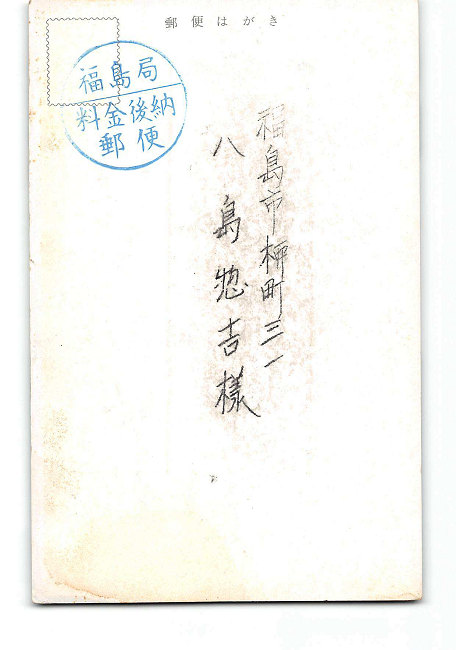 郵便はがき
福島局
料金後納
郵便
福島市柳町三一
八島惣吉様